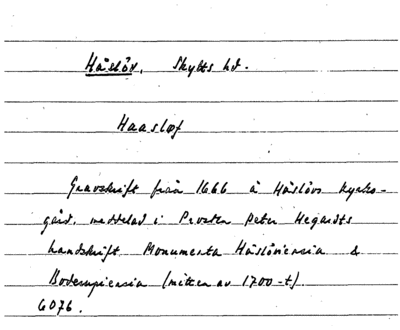 Håslöv, Skytts hd.
Haaslæf
Gravskrift från 1666 å Håslövs kyrko-
gård, meddelad i Prosten Peter Hegardts
handskrift Monumenta Håslöviensia &
Bodarpiensia (mitten av 1700-t).
6076.